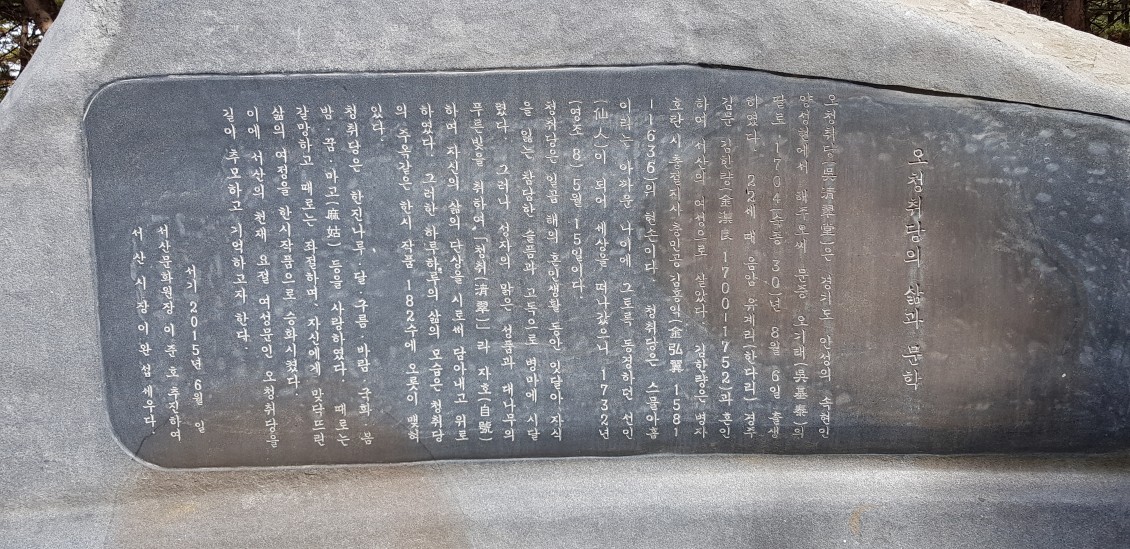 오청취당의 삶과 문학
오청취당(吳淸翠堂)은 경기도 안성의 속현인
양성현에서 해주오씨 문중 오기태(吳基泰)의
딸로 1704(숙종 30)년 8월 6일 출생
하였다. 22세 때 음암 유계리(한다리) 경주
김문 김한량(金漢良 1700-1752)과 혼인
하여 서산의 여성으로 살았다. 김한량은 병자
호란 시 충절지사 충민공 김홍익(金弘翼 1581
-1636)의 현손이다. 청취당은 스물아홉
이라는 아까운 나이에 그토록 동경하던 선인
(仙人)이 되어 세상을 떠나갔으니 1732년
(영조 8) 5월 15일이다.
청취당은 일곱 해의 혼인생활 동안 잇달아 자식
을 잃는 참담한 슬픔과 고독으로 병마에 시달
렸다. 그러나 성자의 맑은 성품과 대나무의
푸른빛을 취하여 「청취(淸翠)」라 자호(自號)
하며 자신의 삶의 단상을 시로써 담아내고 위로
하였다. 그러한 하루하루의 삶의 모습은 청취당
의 주옥같은 한시 작품 182수에 오롯이 맺혀
있다.
청취당은 한진나루·달·구름·바람·국화·봄
밤·꿈·마고(麻姑) 등을 사랑하였다. 때로는
갈망하고 때로는 좌절하며, 자신에게 맞닥뜨린
삶의 여정을 한시작품으로 승화시켰다.
이에 서산의 천재 요절 여성문인 오청취당을
길이 추모하고 기억하고자 한다.
서기 2015년 6월 일
서산문화원장 이준호 추진하여
서산시장 이완섭 세우다